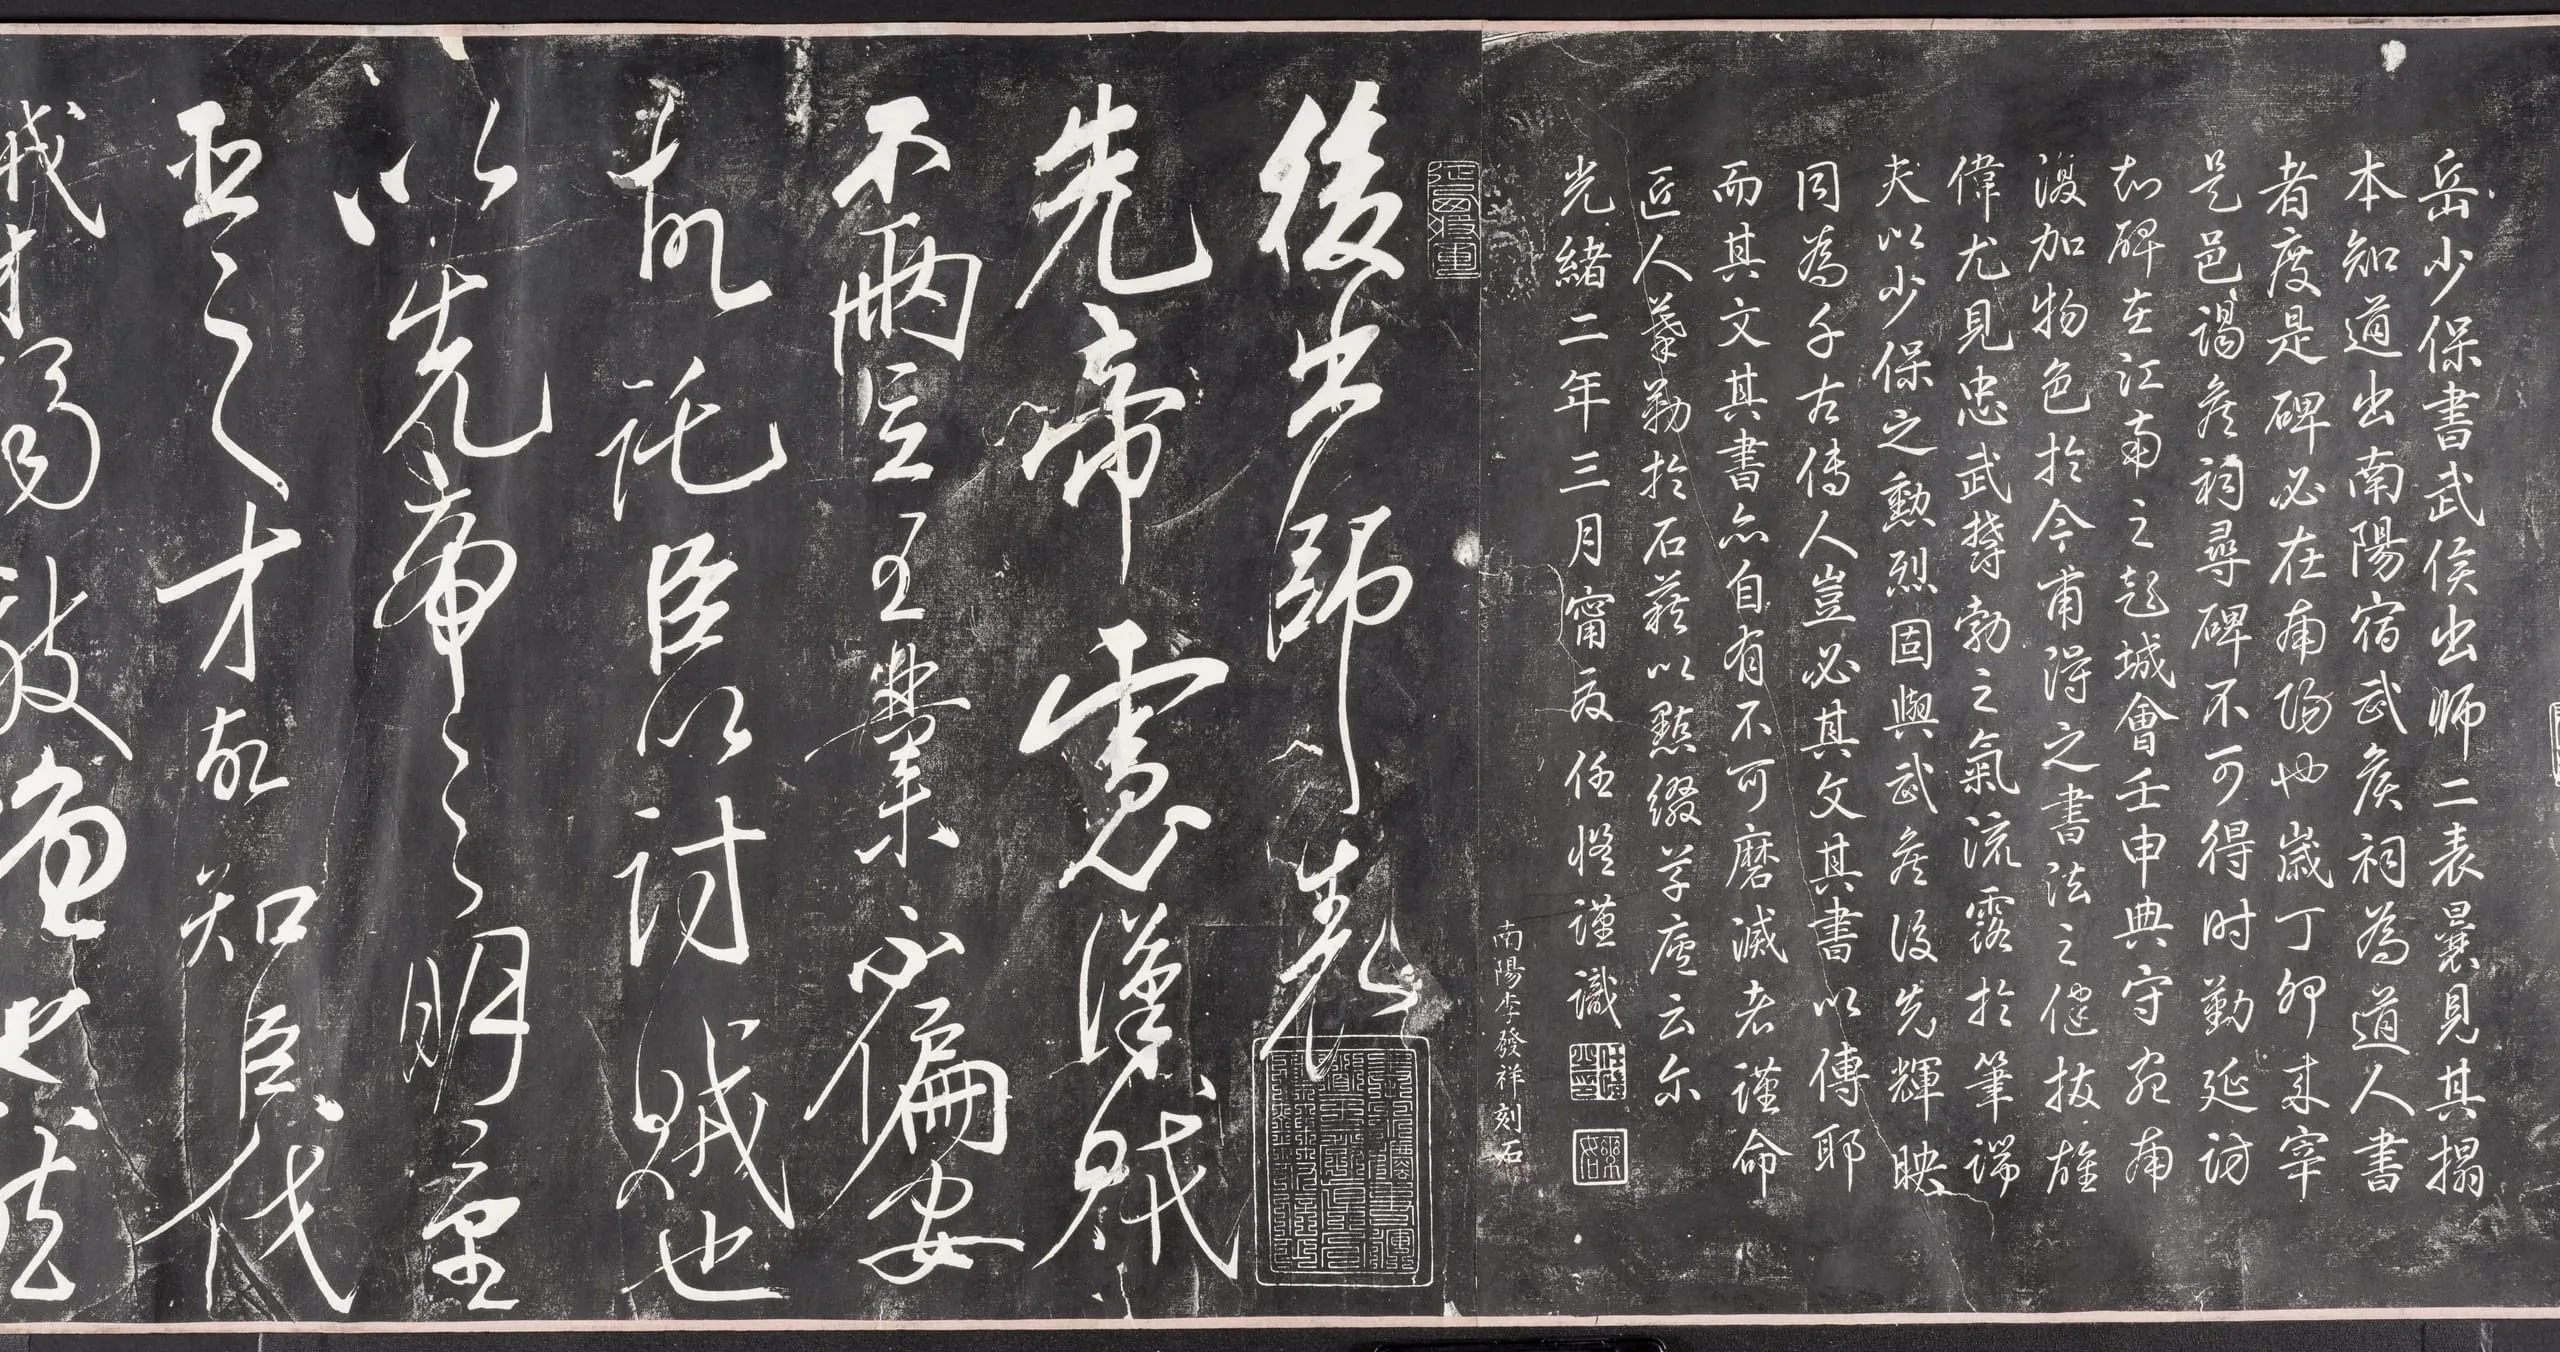 岳少保書武侯出师二表曩見其搨
本知道出南陽宿武矦祠為道人書
者度是碑必在南陽也歲丁卯来宰
是邑謁矦祠尋碑不可得时勤延訪
知碑在江南之彭城會壬申典守宛南
復加物色於今甫得之書法之健拔雄
偉尤見忠武欝勃之氣流露於筆端
夫以少保之勲烈固與武矦後先輝映
同為千古傳人豈必其文其書以傳耶
而其文其書亦自有不可磨滅者謹命
匠人摹勒於石藉以點綴草廬云尔
光緒二年三月甯夏任愷謹識
南陽李發祥刻石
後出師表
先帝慮漢賊
不兩立王業不偏安
故託臣以討賊也
以先帝之明量
臣之才故知臣伐
賊才弱敵彊也然